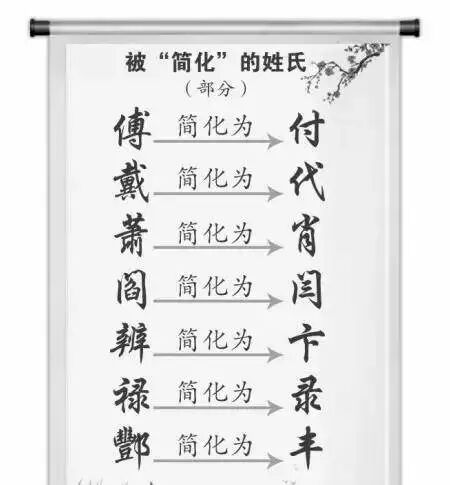 被“简化”的姓氏
（部分）
傅 简化为 付
戴 简化为 代
萧 简化为 肖
阎 简化为 闫
辨 简化为 卞
禄 简化为 录
酆 简化为 丰